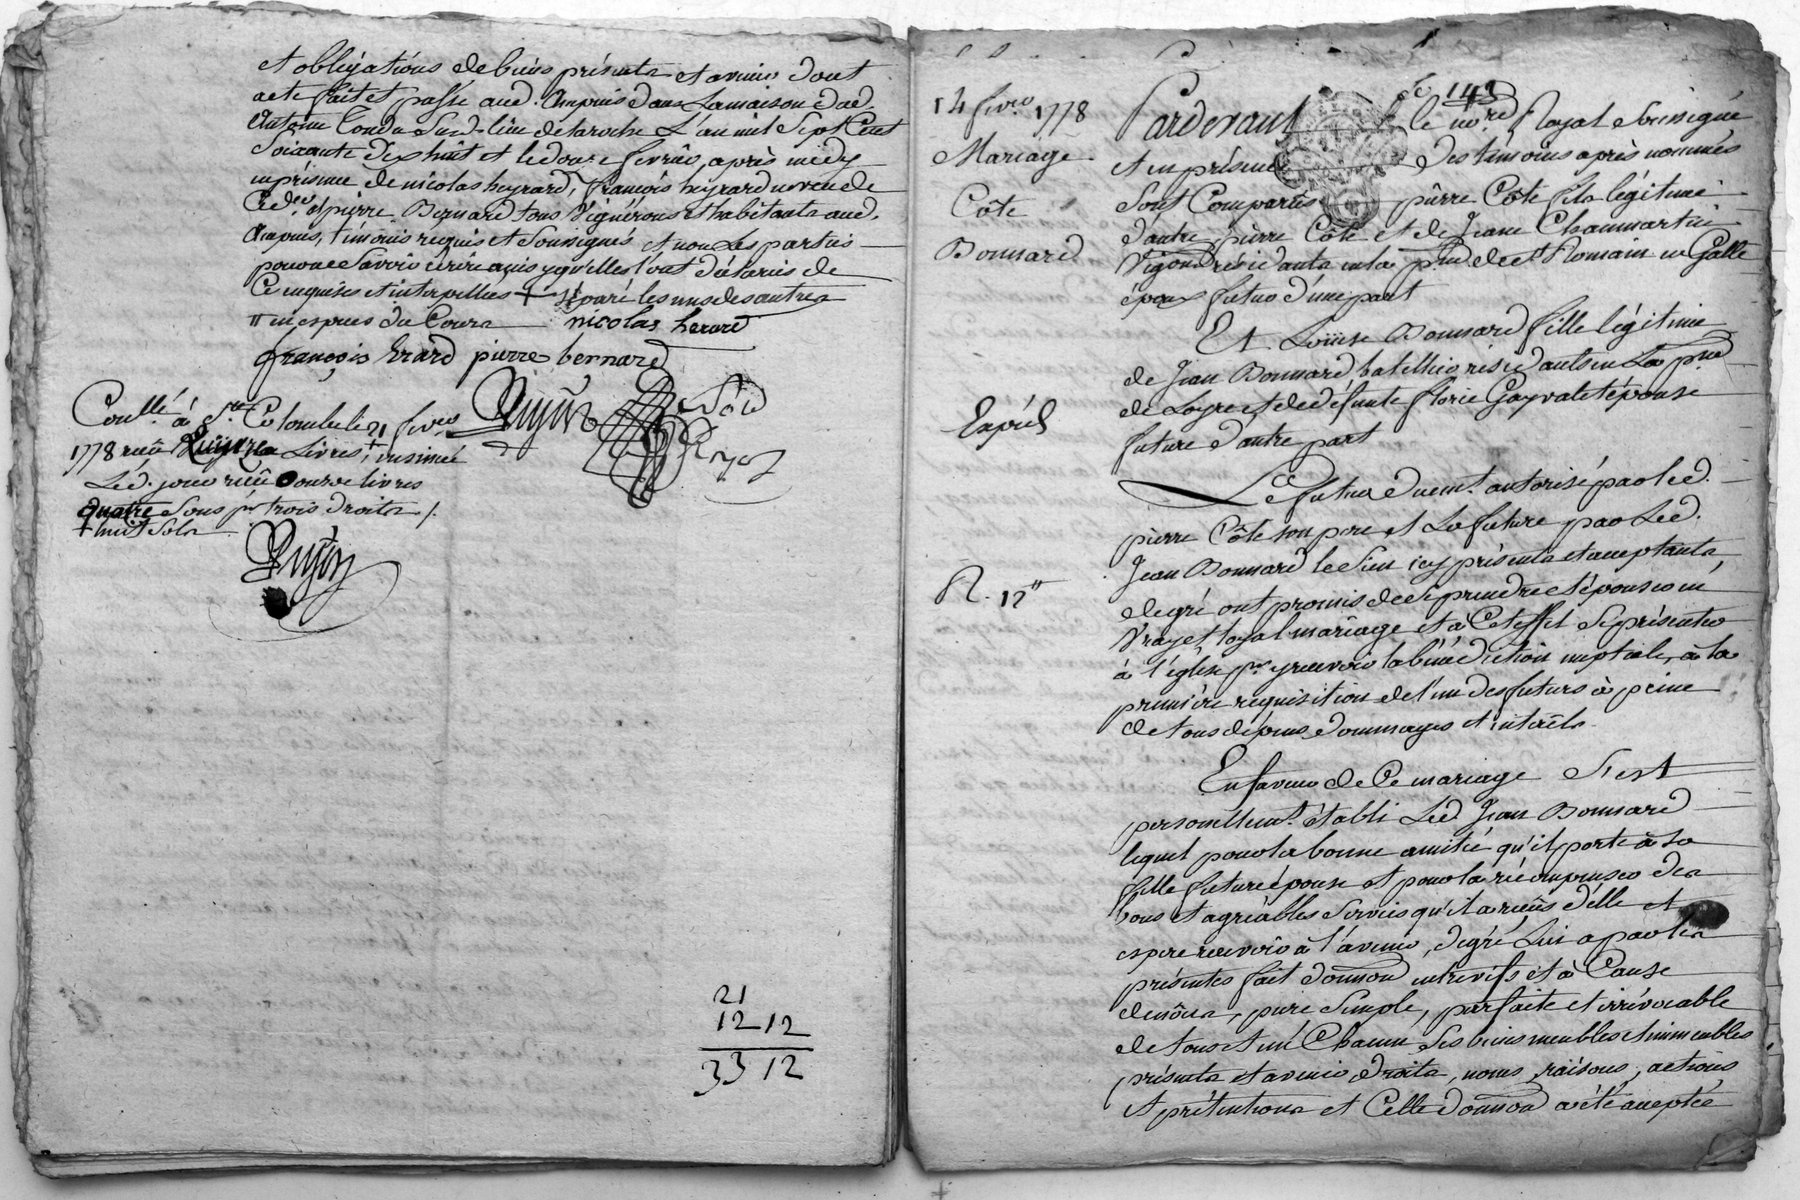 et obligations de biens présents et avenir dont
acte fait et passé aud. Ampuis dans la maison dud.
Antoine Condu Sud. lieu de laroche L'an mil Sept Cent
Soixante dix huit et le douze fevrier, après midy
en présence de nicolas heyrard, françois heyrard neveu de
et pierre Bernard tous Vignérons et habitants aud.
Ampuis, témoins requis et Soussignés et non Les parties
pour ne Savoir écrire ainsy qu'elles l'ont déclaré de
Ce enquises et interpellées +
nicolas herard
françois Erard pierre bernard
Conllé à Ste Colombe le 21 fevrier
1778 reçû Livres + insinué
Led. jour reçû Douze livres
quatre Sous pr trois droits /.
+ huit Sols
21
12 12
33 12
143
14 fevr. 1778
Mariage
Côte
Bonnard
Expéd
R. 12"
Pardevant le no.re Royal Soussigné
et en présence des témoins après nommés
Sont Comparus pierre Côte fils légitime
d'autre pierre Côte et de Jeane Chaumartin
Vigon résidants en la p.sse de St Romain en Galle
époux futur d'une part
Et Loüise Bonnard fille légitime
de Jean Bonnard battellier résidants en La p.sse
de Loyre et de défunte florie Gayvallet épouse
future d'autre part
Le futur duem.t autorisé par led.
pierre Côte son pere et La future par Led.
Jean Bonnard le Sien icy présents et acceptants,
de gré ont promis de se prendre et épouser en
Vray et loyal mariage et à Cet effet Se présenter
à l'église p.r y recevoir la bénédiction nuptiale, à la
premiere requisition de l'un des futurs à peine
de tous dépens, dommages et intérêts.
En faveur de Ce mariage S'est
personellem.t établi Led Jean Bonnard
lequel pour la bonne amitié qu'il porte à Sa
fille future épouse et pour la récompenser des
bons et agréables Services qu'il a reçus d'elle et
espere recevoir à l'avenir, de gré, Lui a par les
présentes fait donnon entrevifs et à Cause
de nôces, pure Simple, parfaite et irrévocable
de tous et un Chacun Ses biens meubles et immeubles
présents et avenir droits, noms, raisons, actions
et prétentions et Celle donnon a été acceptée